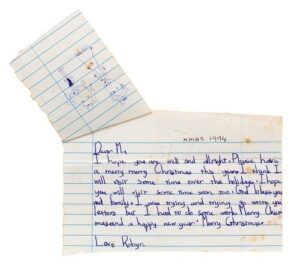 XMAS 1994
Dear Ms
I hope you are well and allright. Please have
a merry merry Christmas this year. I think I
will visit some time over the holidays. I hope
you will visit some time soon too. God bless you
and family. I was trying and trying to write you
letters but I had to do some work. Merry Christ
mas and a happy new year. Merry Christmas
Love Robyn